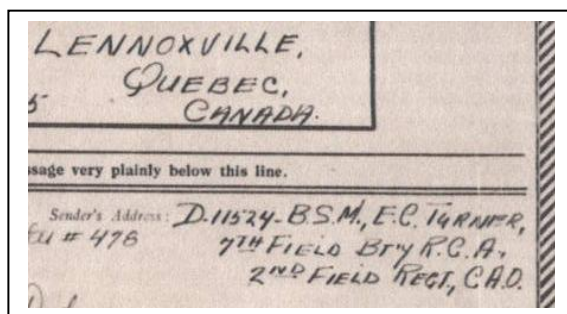 LENNOXVILLE,
QUEBEC,
5 CANADA.
sage very plainly below this line.
Sender's Address: D-11524-B.S.M., E.C. TURNER,
# 476 7TH FIELD BT'Y R.C.A.,
2ND FIELD REGT., C.A.O.